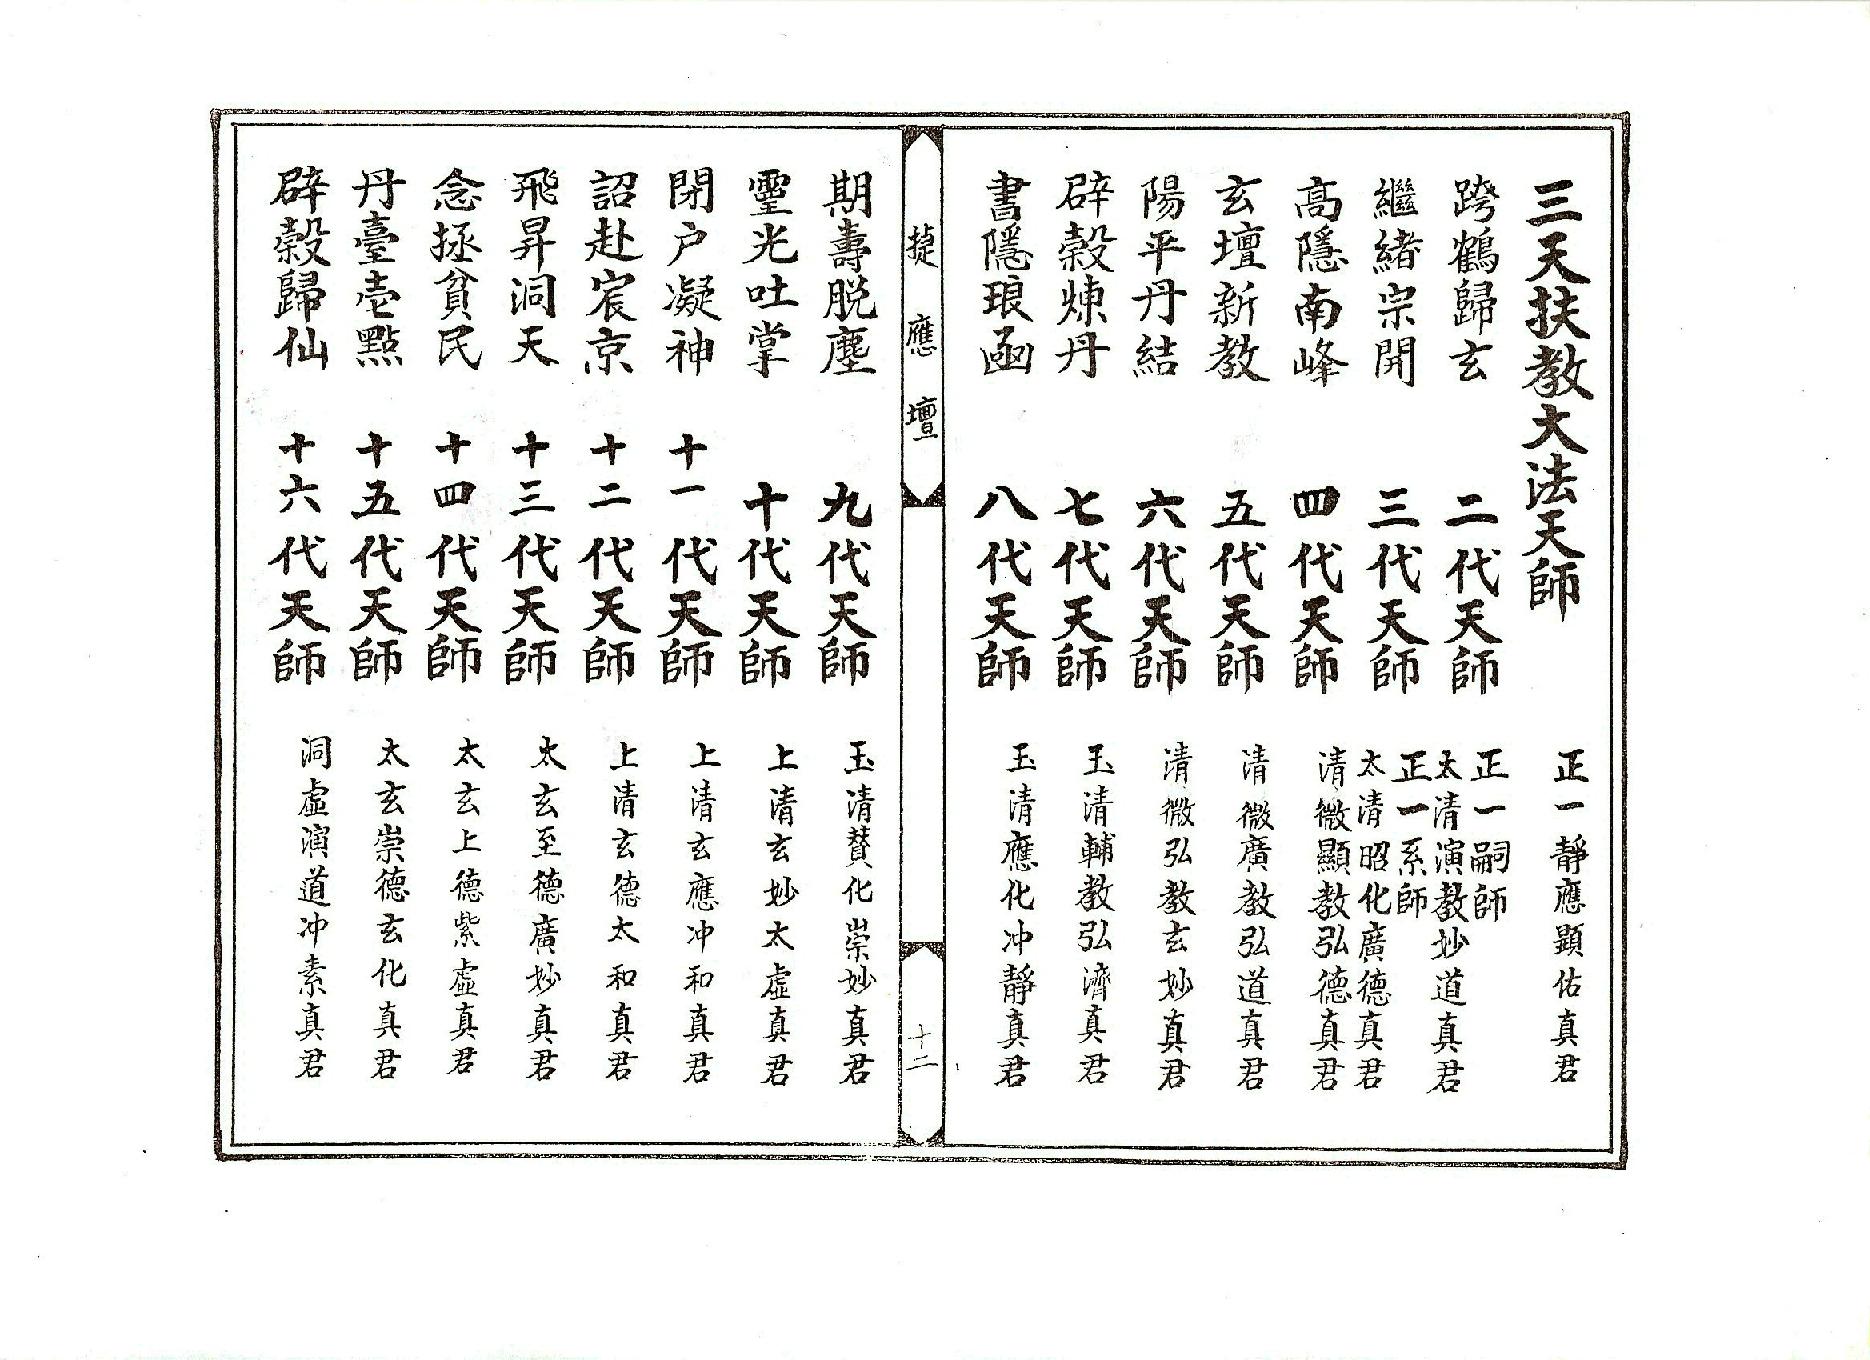 三天扶教大法天師　正一靜應顯佑真君
跨鶴歸玄　二代天師　正一嗣師
太清演教妙道真君
繼緒宗開　三代天師　正一系師
太清昭化廣德真君
高隱南峰　四代天師　清微顯教弘德真君
玄壇新教　五代天師　清微廣教弘道真君
陽平丹結　六代天師　清微弘教玄妙真君
辟穀煉丹　七代天師　玉清輔教弘濟真君
書隱琅函　八代天師　玉清應化冲靜真君
捷應壇
十二
期壽脱塵　九代天師　玉清贊化崇妙真君
靈光吐掌　十代天師　上清玄妙太虛真君
閉户凝神　十一代天師　上清玄應冲和真君
詔赴宸京　十二代天師　上清玄德太和真君
飛昇洞天　十三代天師　太玄至德廣妙真君
念拯貧民　十四代天師　太玄上德紫虛真君
丹臺壱點　十五代天師　太玄崇德玄化真君
辟穀歸仙　十六代天師　洞虛演道冲素真君